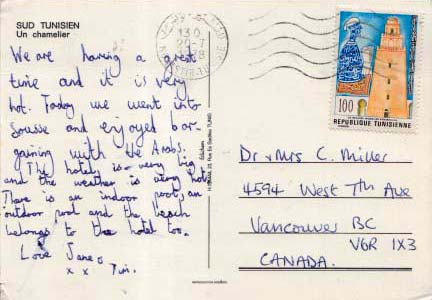 SUD TUNISIEN
Un chamelier
We are having a great
time and it is very
hot. Today we went into
Sousse and enjoyed bar-
gaining with the Arabs.
The hotel is very big
and the weather is very hot.
There is an indoor pool, an
outdoor pool and the beach
belongs to the hotel too.
Love Jane
x x
130
100
REPUBLIQUE TUNISIENNE
Dr & Mrs C. Miller
4594 West 7th Ave
Vancouver BC
V6R 1X3
CANADA.